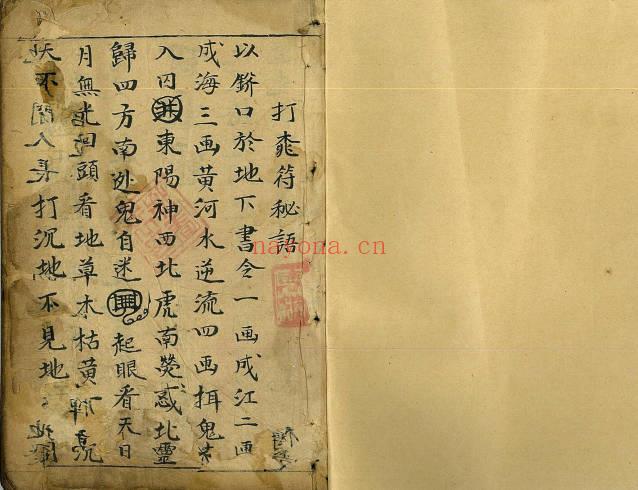 打符秘語
以鉼口於地下書令一画成江二画
成海三画黄河水逆流四画㨓鬼
入囚井東陽神西北虎南熒惑北靈
歸四方南处鬼自迷起眼看天日
月無光回頭看地草木枯黄
天不聞人打沉地不見地
nayona.cn